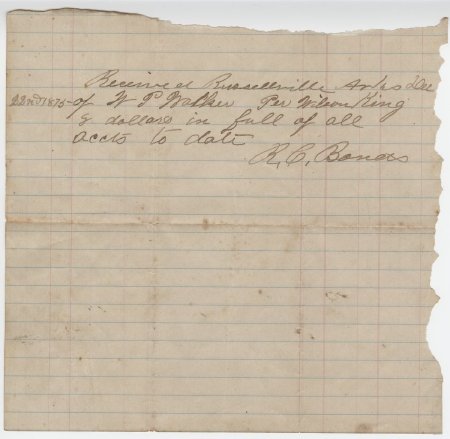 Received Russellville Arks Dec
22nd 1875 of W P Walker Per Wilson King
& dollars in full of all
accts to date
R. C. Bonds